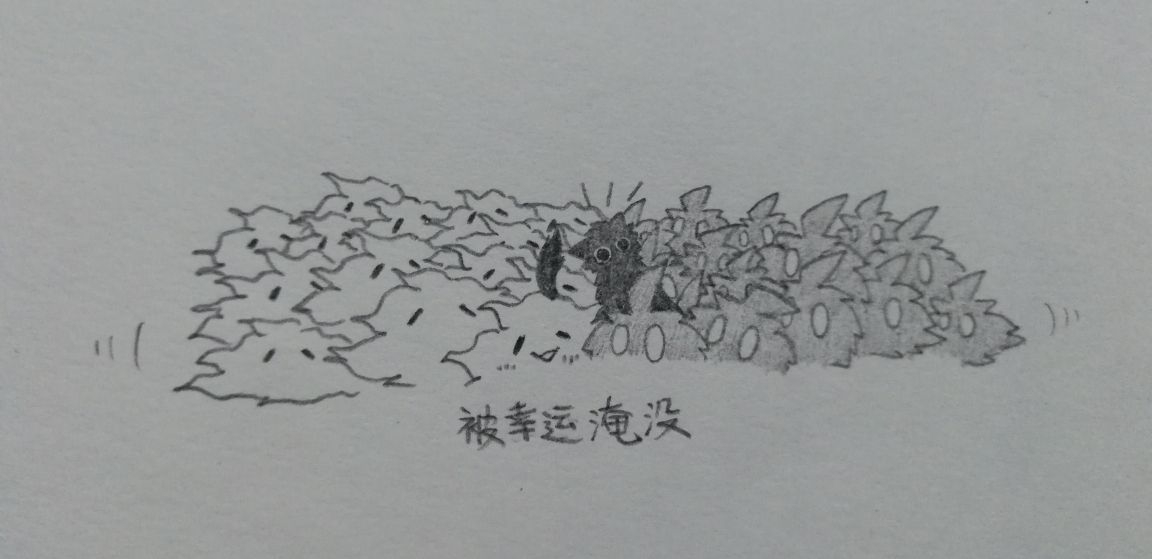 被幸运淹没